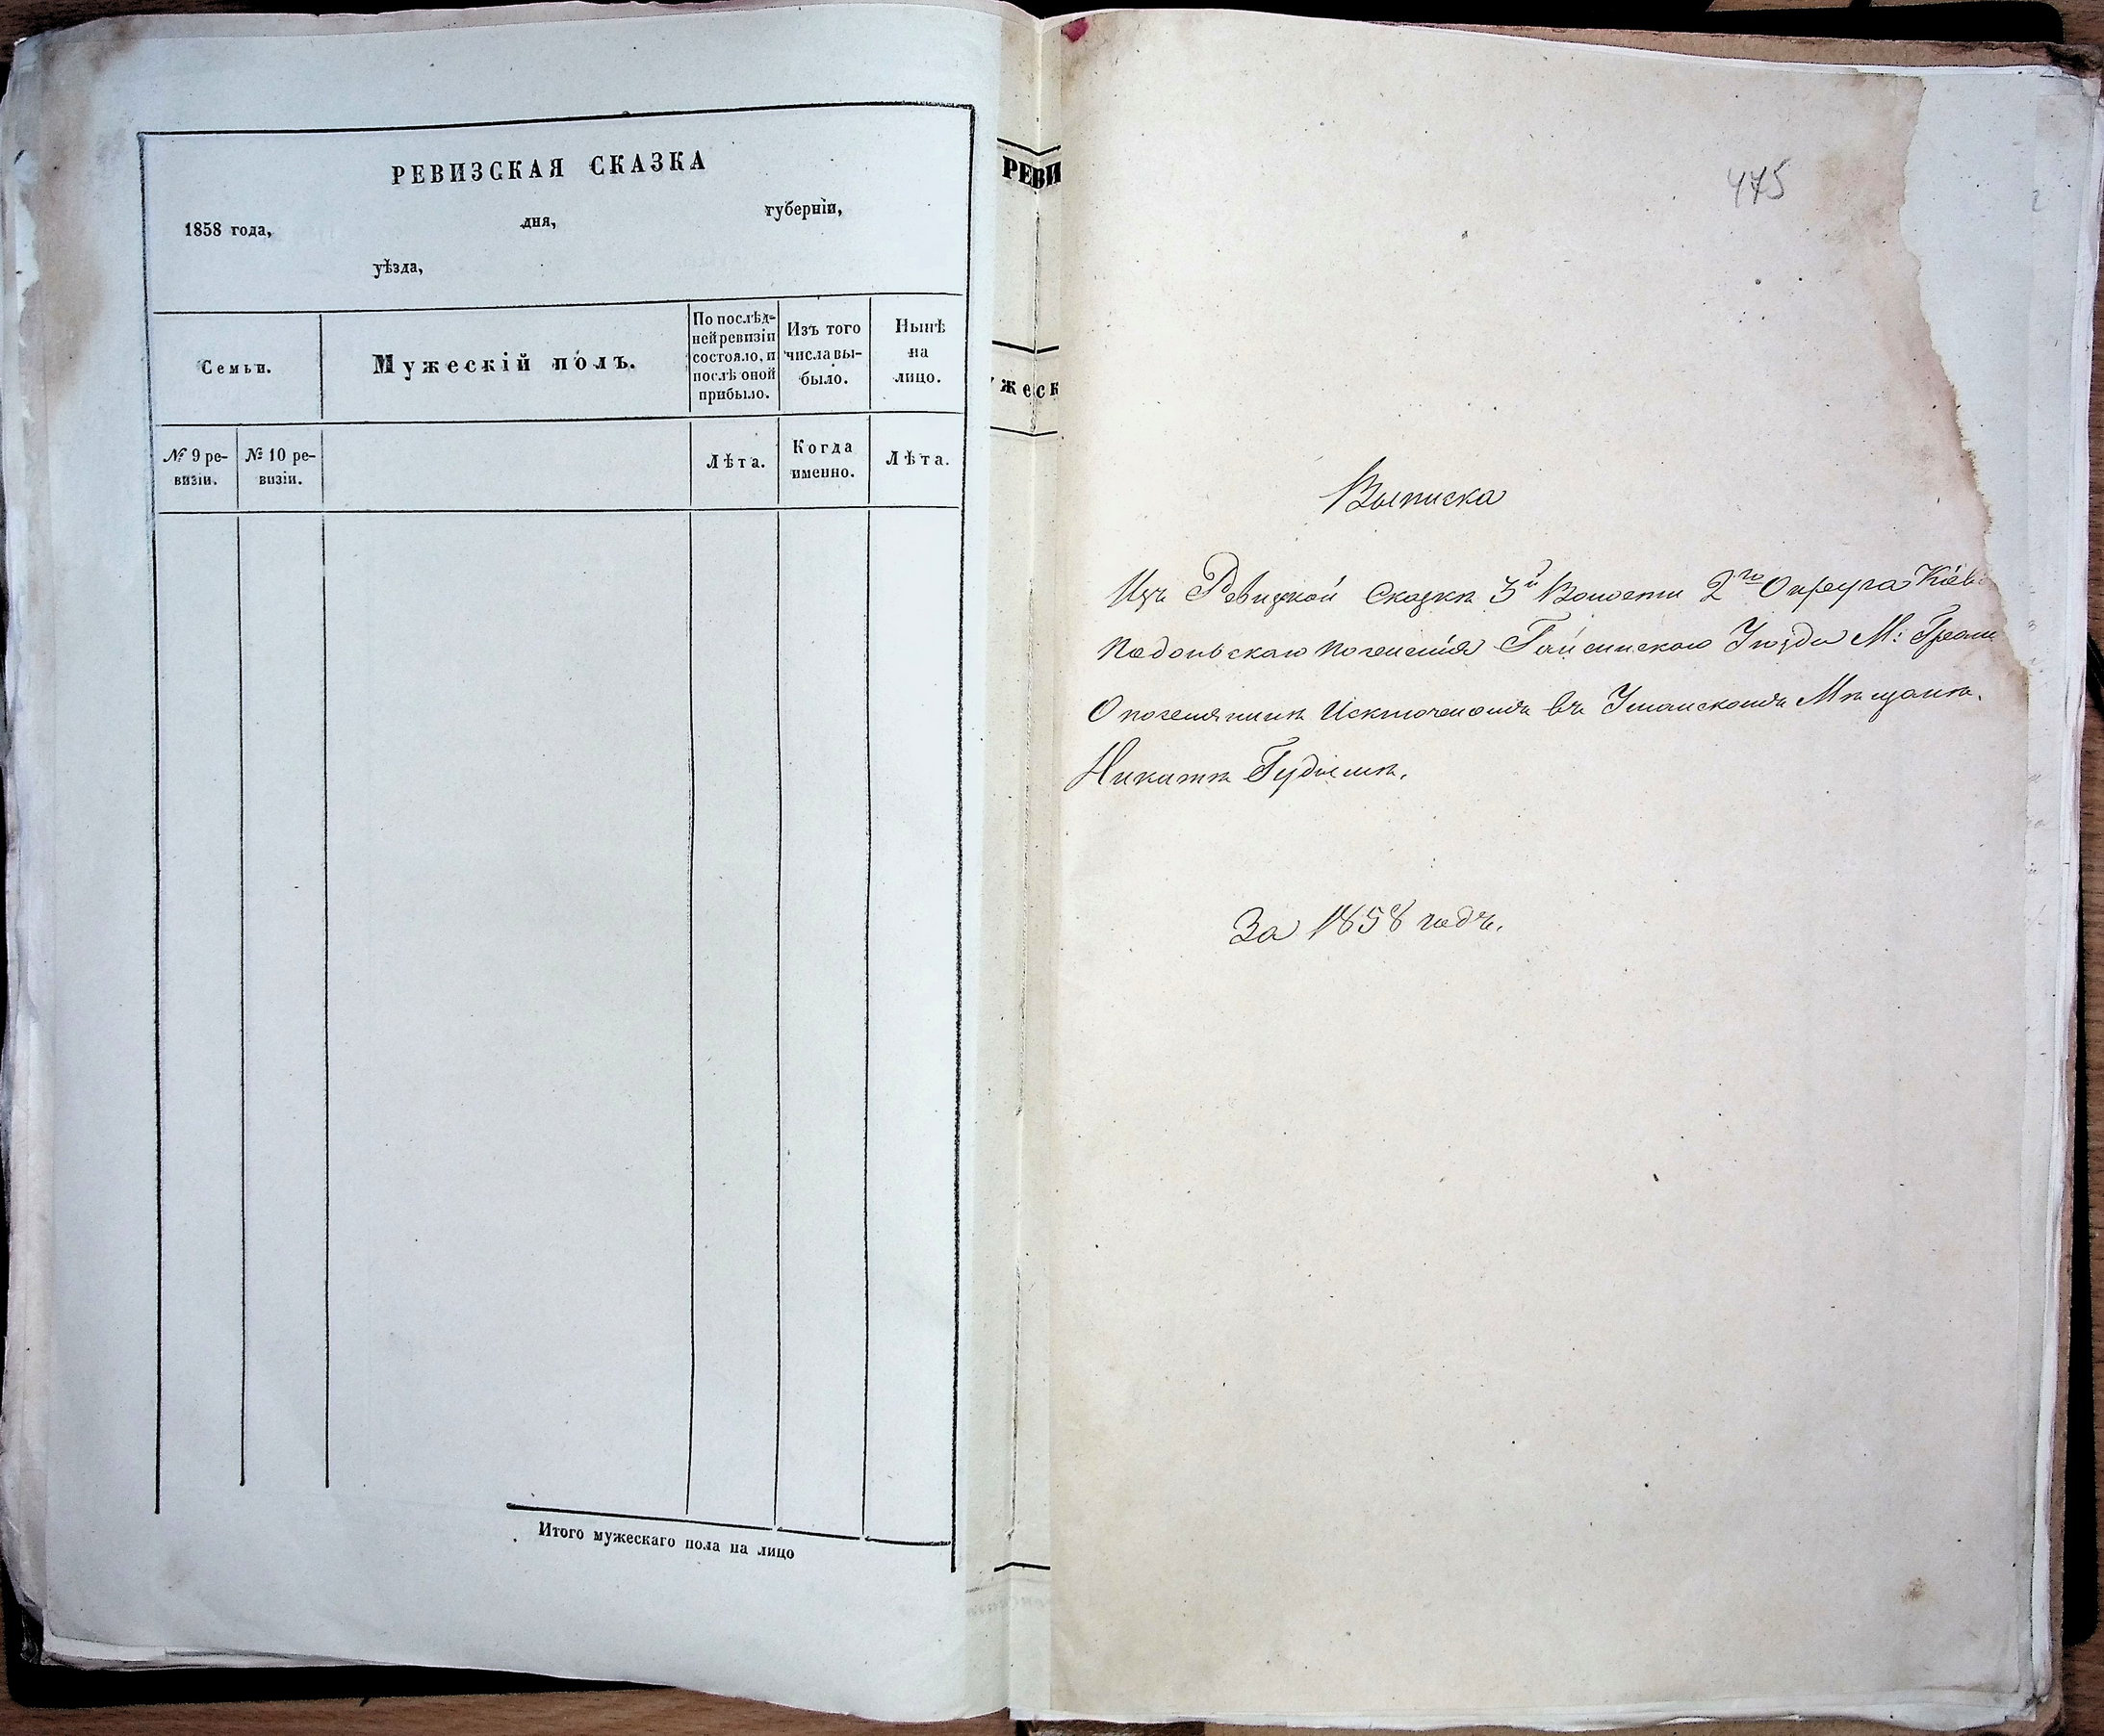 РЕВИЗСКАЯ СКАЗКА
1858 года, дня, губерніи,
уѣзда,
Семьи.
Мужескій полъ.
По послѣд-
ней ревизіи
состояло, и
послѣ оной
прибыло.
Изъ того
числа вы-
было.
Нынѣ
на
лицо.
№ 9 ре-
визіи.
№ 10 ре-
визіи.
Лѣта.
Когда
именно.
Лѣта.
Итого мужескаго пола на лицо
РЕВИ
ужеск
475
Выписка
Изъ Ревизкой Сказки 3й Волости 2го Округа Кіев
Подольскаго поселенія Гайсинскаго Уѣзда М: Грано
О поселянинѣ Исключеномъ въ Уманскомъ Мѣщанѣ.
Никитѣ
За 1858 годъ.